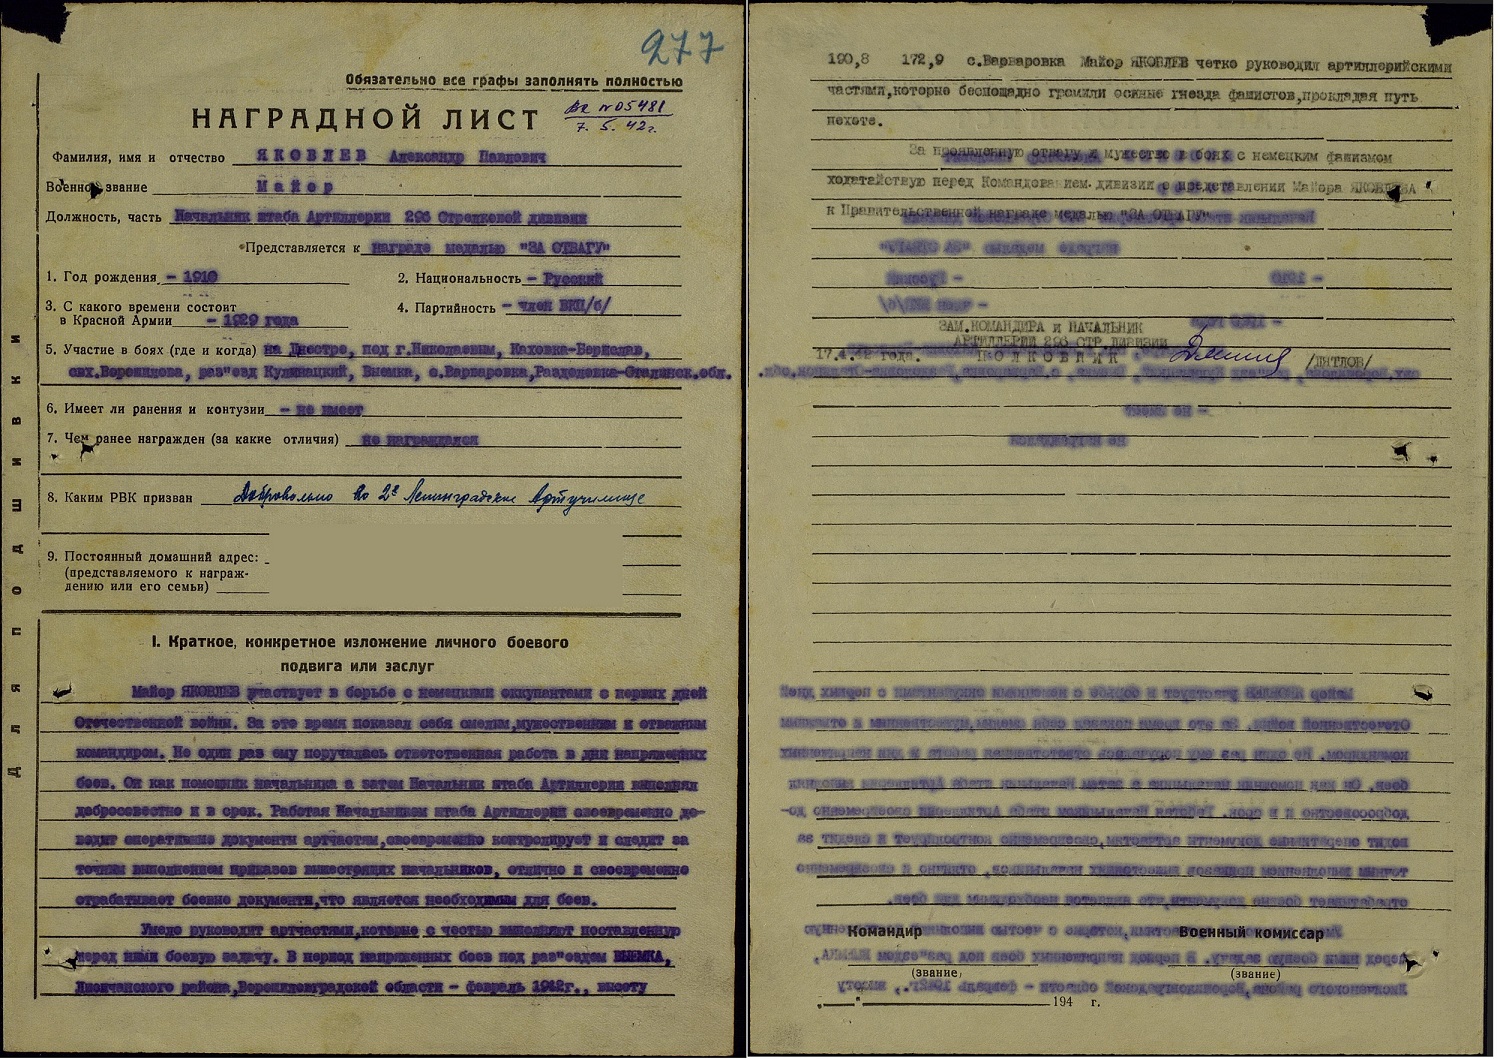 277
Обязательно все графы заполнять полностью
НАГРАДНОЙ ЛИСТ
Вх №05481
7. 5. 42г.
Фамилия, имя и отчество ЯКОВЛЕВ Александр Павлович
Военное звание Майор
Должность, часть Начальник штаба Артиллерии 296 Стрелковой дивизии
Представляется к награде медалью "ЗА ОТВАГУ"
1. Год рождения – 1910
2. Национальность – Русский
3. С какого времени состоит
в Красной Армии – 1929 года
4. Партийность – член ВКП/б/
5. Участие в боях (где и когда) на Днестре, под г.Николаевым, Каховка-Берислав,
свх.Ворошилова, раз"езд Выемка, с.Варваровка,
6. Имеет ли ранения и контузии – не имеет
7. Чем ранее награжден (за какие отличия) не награждался
8. Каким РВК призван Добровольно во 2е Ленинградское Артучилище
9. Постоянный домашний адрес:
(представляемого к награж-
дению или его семьи)
Для подшивки
I. Краткое, конкретное изложение личного боевого
подвига или заслуг
Майор ЯКОВЛЕВ участвует в борьбе с немецкими оккупантами с первых дней
Отечественной войны. За это время показал себя смелым,мужественным и отважным
командиром. Не один раз ему поручалась ответственная работа в дни напряженных
боев. Он как помощник начальника а затем Начальник штаба Артиллерии выполнял
добросовестно и в срок. Работая Начальником штаба Артиллерии своевременно до-
водит оперативные документы артчастям,своевременно контролирует и следит за
точным выполнением приказов вышестоящих начальников, отлично и своевременно
отрабатывает боевые документы,что является необходимым для боев.
Умело руководит артчастями,которые с честью выполняют поставленную
перед ними боевую задачу. В период напряженных боев под раз"ездом ВЫЕМКА,
Лисичанского района,Ворошиловградской области – февраль 1942г., высоту
190,8 172,9 с.Варваровка Майор ЯКОВЛЕВ четко руководил артиллерийскими
частями,которые беспощадно громили осиные гнезда фашистов,прокладая путь
пехоте.
За проявленную отвагу и мужество в боях с немецким фашизмом
ходатайствую перед Командованием дивизии о представлении Майора ЯКОВЛЕВА
к Правительственной награде медалью "ЗА ОТВАГУ"
ЗАМ.КОМАНДИРА и НАЧАЛЬНИК
АРТИЛЛЕРИИ 296 СТР.ДИВИЗИИ
17.4.42 года. ПОЛКОВНИК /ДЯТЛОВ/
Командир
Военный комиссар
(звание)
(звание)
„ " 194 г.